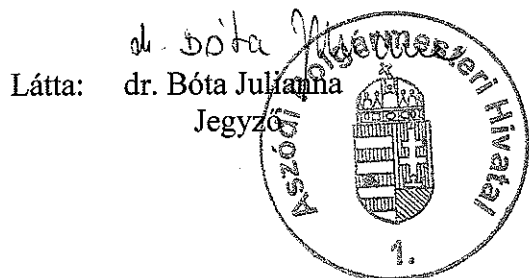 dr. Bóta Julianna
Látta: dr. Bóta Julianna
Jegyző
Aszódi Polgármesteri Hivatal
1.